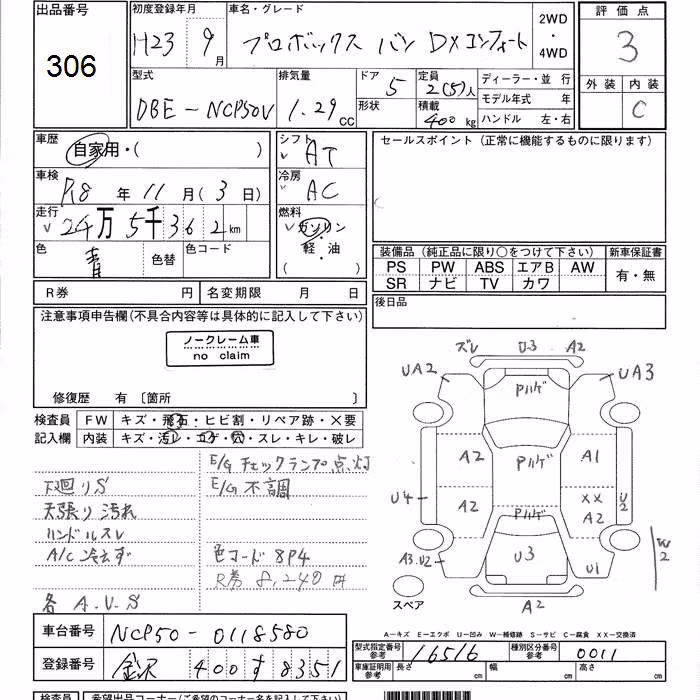 出品番号
306
初度登録年月
H23 9月
車名・グレード
プロボックス バン DXコンフォート
2WD
・
4WD
評価点
3
外装 内装
C
型式
DBE-NCP50V
排気量
1.29cc
ドア
5
形状
定員
2(5)人
積載
400kg
ディーラー・並行
モデル年式 年
ハンドル 左・右
車歴
自家用・( )
シフト
AT
セールスポイント (正常に機能するものに限ります)
車検
年 11月(3日)
冷房
AC
走行
24万5千362km
燃料
ガソリン
・
軽・油
( )
色
青
色替
色コード
装備品(純正品に限り○をつけて下さい)
新車保証書
PS PW ABS エアB AW
SR ナビ TV カワ
有・無
R券 円
名変期限 月 日
後日品
注意事項申告欄(不具合内容等は具体的に記入して下さい)
ノークレーム車
no claim
修復歴 有〔箇所 〕
検査員
記入欄
FW キズ・飛石・ヒビ割・リペア跡・X要
内装 キズ・汚レ・コゲ・穴・スレ・キレ・破レ
E/Gチェックランプ点灯
下廻りS
E/G不調
天張り汚れ
ハンドルスレ
A/C冷えず
色コード 8P4
R券 8,240円
各 A.U.S
ズレ U3 A2
UA2
UA3
Pハゲ
A2
Pハゲ
A1
U4
A2
XX
A2
U2
Pハゲ
A3.U2
U3
U1
W2
スペア
A2
A-キズ E-エクボ U-凹み W-補修跡 S-サビ C-腐食 XX-交換済
車台番号
NCP50-0118580
型式指定番号
参考
16516
種別区分番号
参考
0011
登録番号
金沢 400 す 8351
車庫証明用
参考
長さ cm
幅 cm
高さ cm
検査員
希望出品コーナー(ご希望のコーナー名を記入